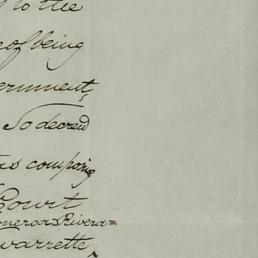 to the
of being
ernment,
So decreed
as composing
Court
oneroa & Rivera=
varrette